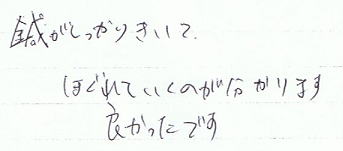 鍼がしっかりきいて、
ほぐれていくのが分かります
良かったです